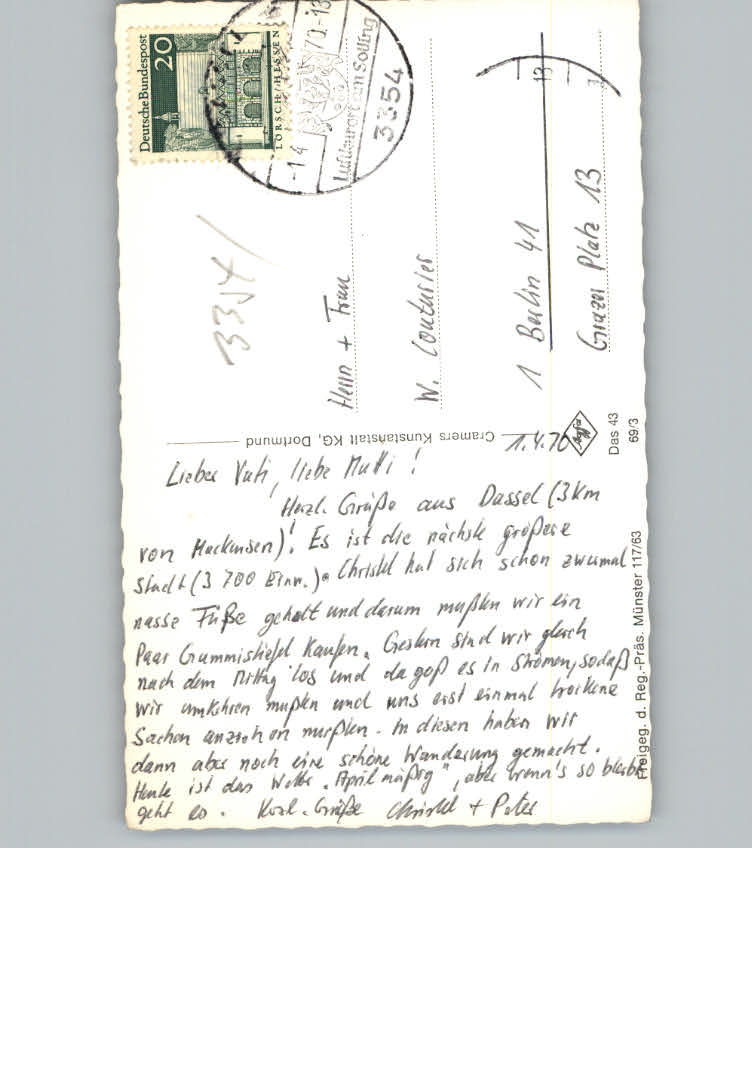 Deutsche Bundespost
20
LORSCH / HESSEN
-1.4. 70-13
Luftkurort am Solling
3354
13
3354
Herrn + Frau
W. Couturier
1 Berlin 41
Grazer Platz 13
Cramers Kunstanstalt KG, Dortmund
Das 43
69/3
Freigeg. d. Reg.-Präs. Münster 117/63
1.4.70
Lieber Vati, liebe Mutti!
Herzl. Grüße aus Dassel (3 km
von Mackensen)! Es ist die nächste größere
Stadt (3 700 Einw.). Christel hat sich schon zweimal
nasse Füße geholt und darum mußten wir ein
Paar Gummistiefel kaufen. Gestern sind wir gleich
nach dem Mittag los und da goß es in Strömen, sodaß
wir umkehren mußten und uns erst einmal trockene
Sachen anziehen mußten. In diesen haben wir
dann aber noch eine schöne Wanderung gemacht.
Heute ist das Wetter "Aprilmäßig", aber wenn's so bleibt
geht es. Herzl. Grüße Christel + Peter